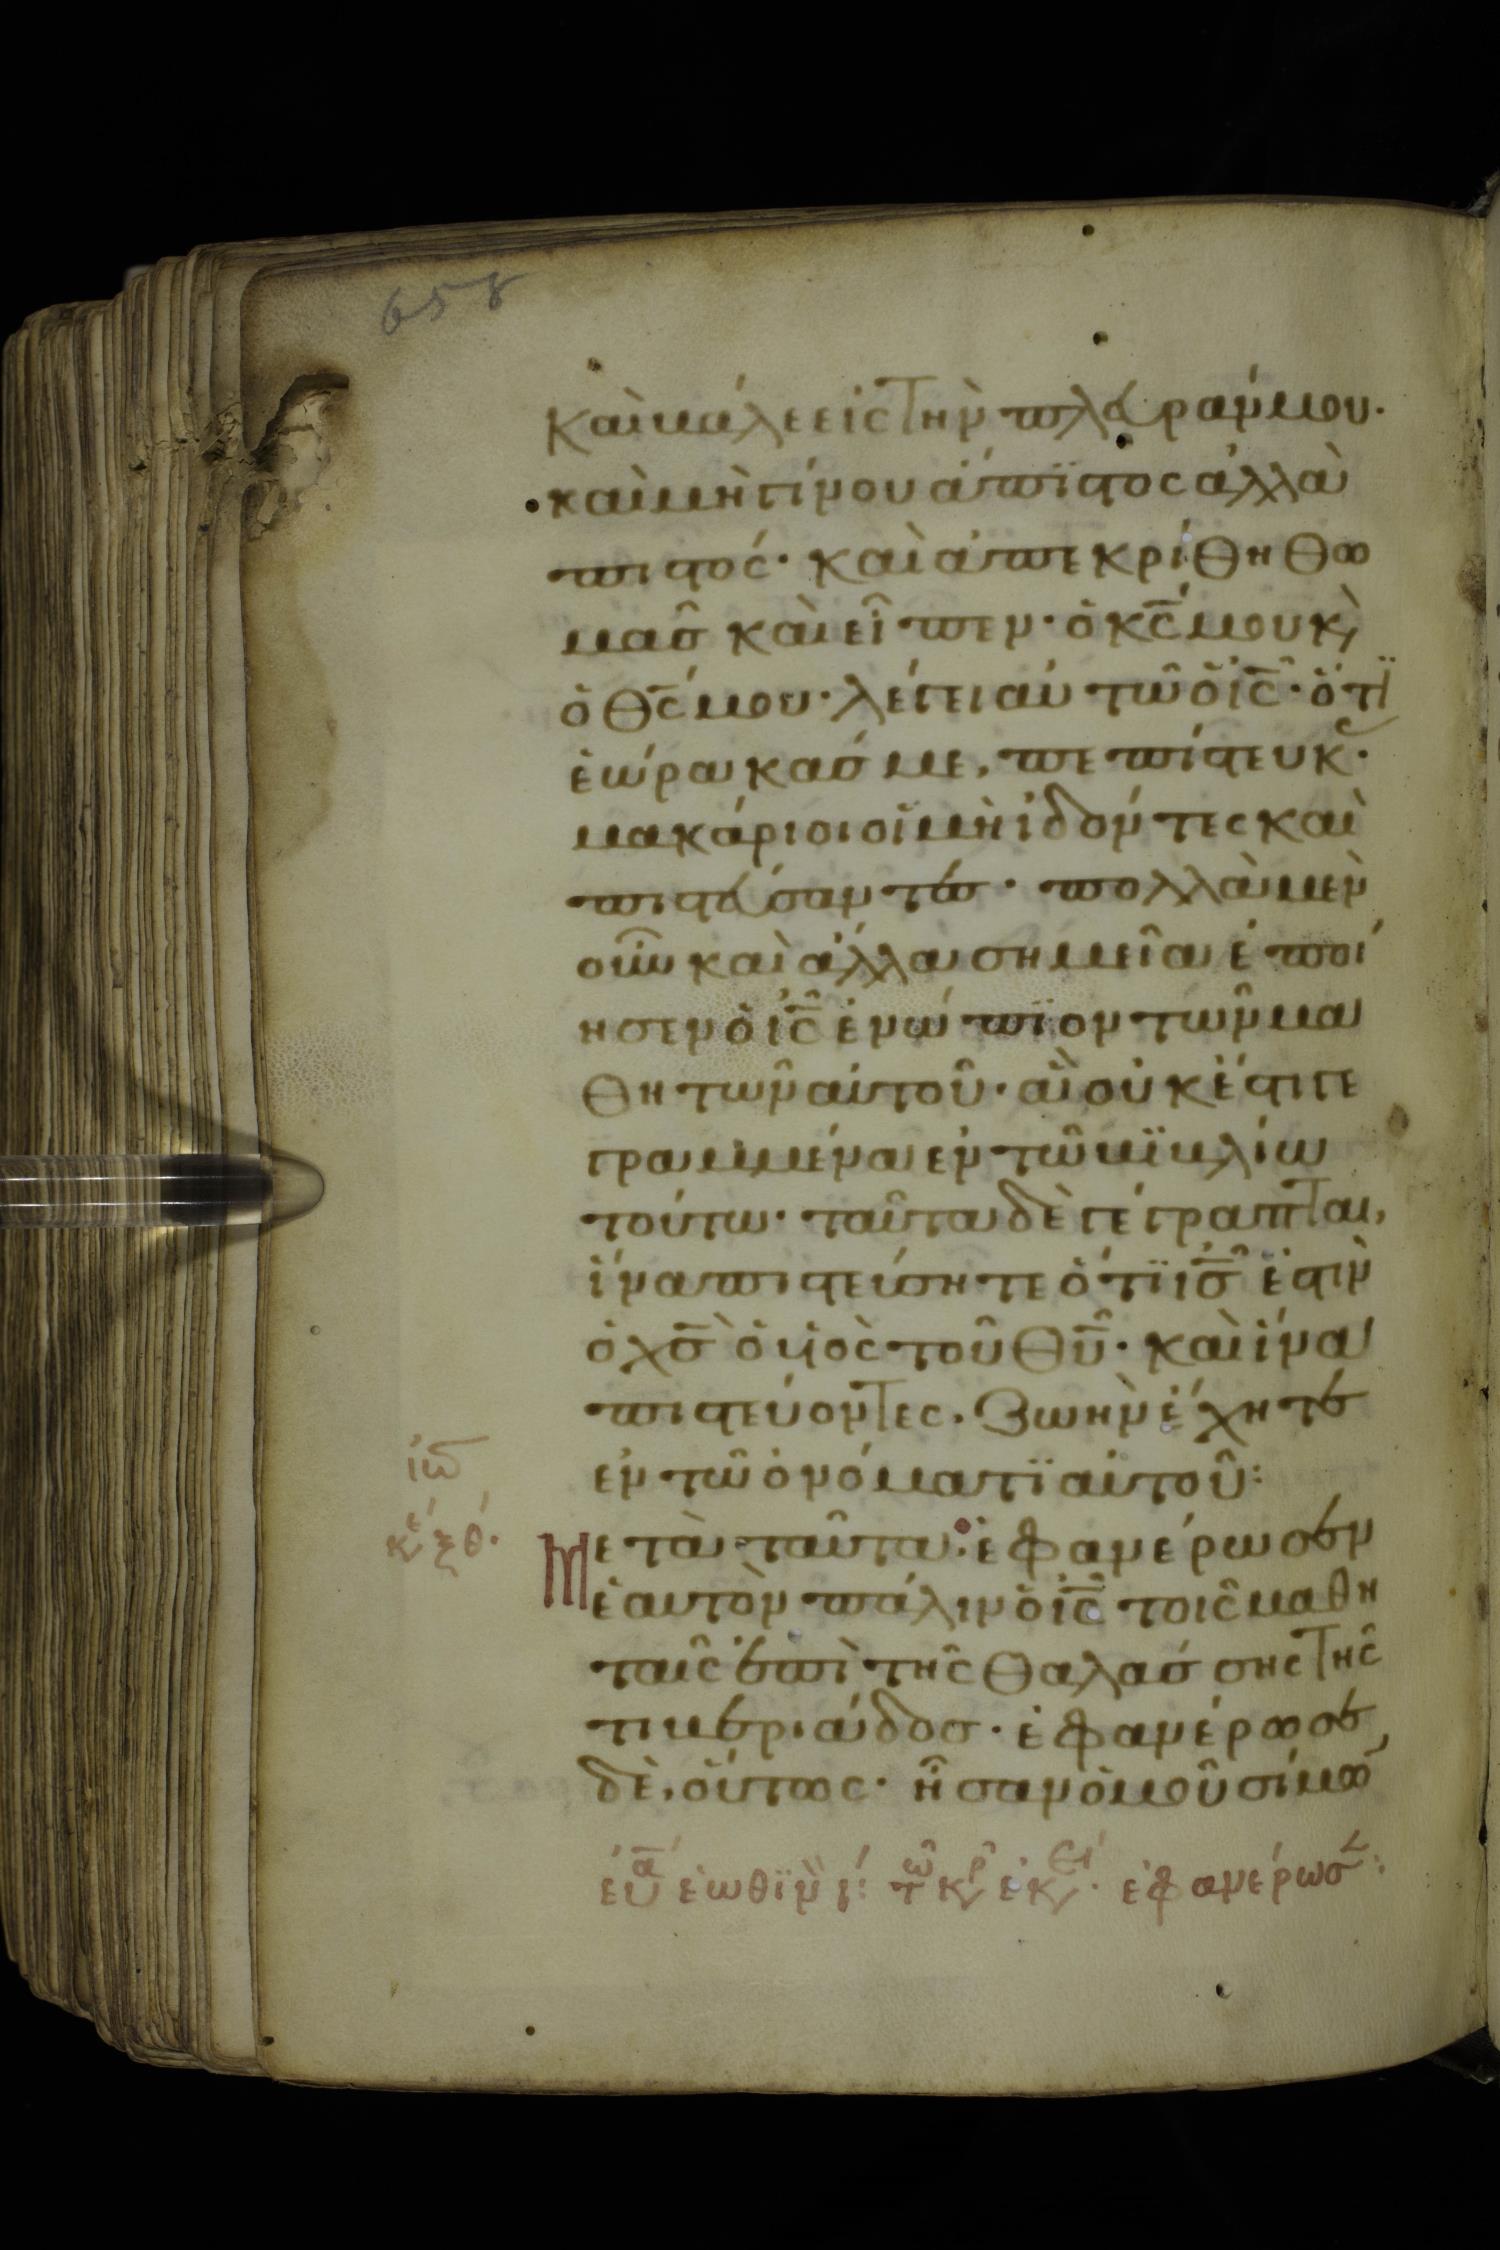 658
καὶ βάλε εἰς τὴν πλευράν μου.
καὶ μὴ γίνου ἄπϊστος ἀλλὰ
πιστός· καὶ ἀπεκρίθη Θω
μασ καὶ εἶπεν· ὁ κς̅ μου κ̀
ὁ θς̅ μου· λέγει αὐτῶ ὁ ις̅· ὅτϊ
ἑώρακάσ με, πεπίστευκ·
μακάριοι οἱ μὴ ἰδόντες καὶ
πιστεύσαντεσ· πολλὰ μὲν
οὖν καὶ ἄλλα σημεῖα ἐποί
ησεν ὁ ις̅ ἐνώπϊον τῶν μα
θητῶν αὐτοῦ· ἃ οὐκ ἔστι γε
γραμμένα ἐν τῶ βϊβλίω
τούτω· ταῦτα δὲ γέγραπται,
ἵνα πιστεύσητε ὅτϊ ισ̅ ἐστιν
ὁ χσ̅ ὁ υἱὸς τοῦ θυ̅· καὶ ἵνα
πιστεύοντες. ζωὴν ἔχητε
ἐν τῶ ὀνόματϊ αὐτοῦ:
ἰω
κε ξθ·
Μετὰ ταῦτα· ἐφανέρωσεν
ἑαυτὸν πάλιν ὁ ις̅ τοῖς μαθη
ταῖς ἐπὶ τῆς θαλάσσης τῆς
τιβεριάδοσ· ἐφανέρωσε
δὲ, οὕτως· ἦσαν ὁμοῦ σίμω
εὐα ἑωθϊν ι: τω κρ ἐκει· ἐφανέρωσ: